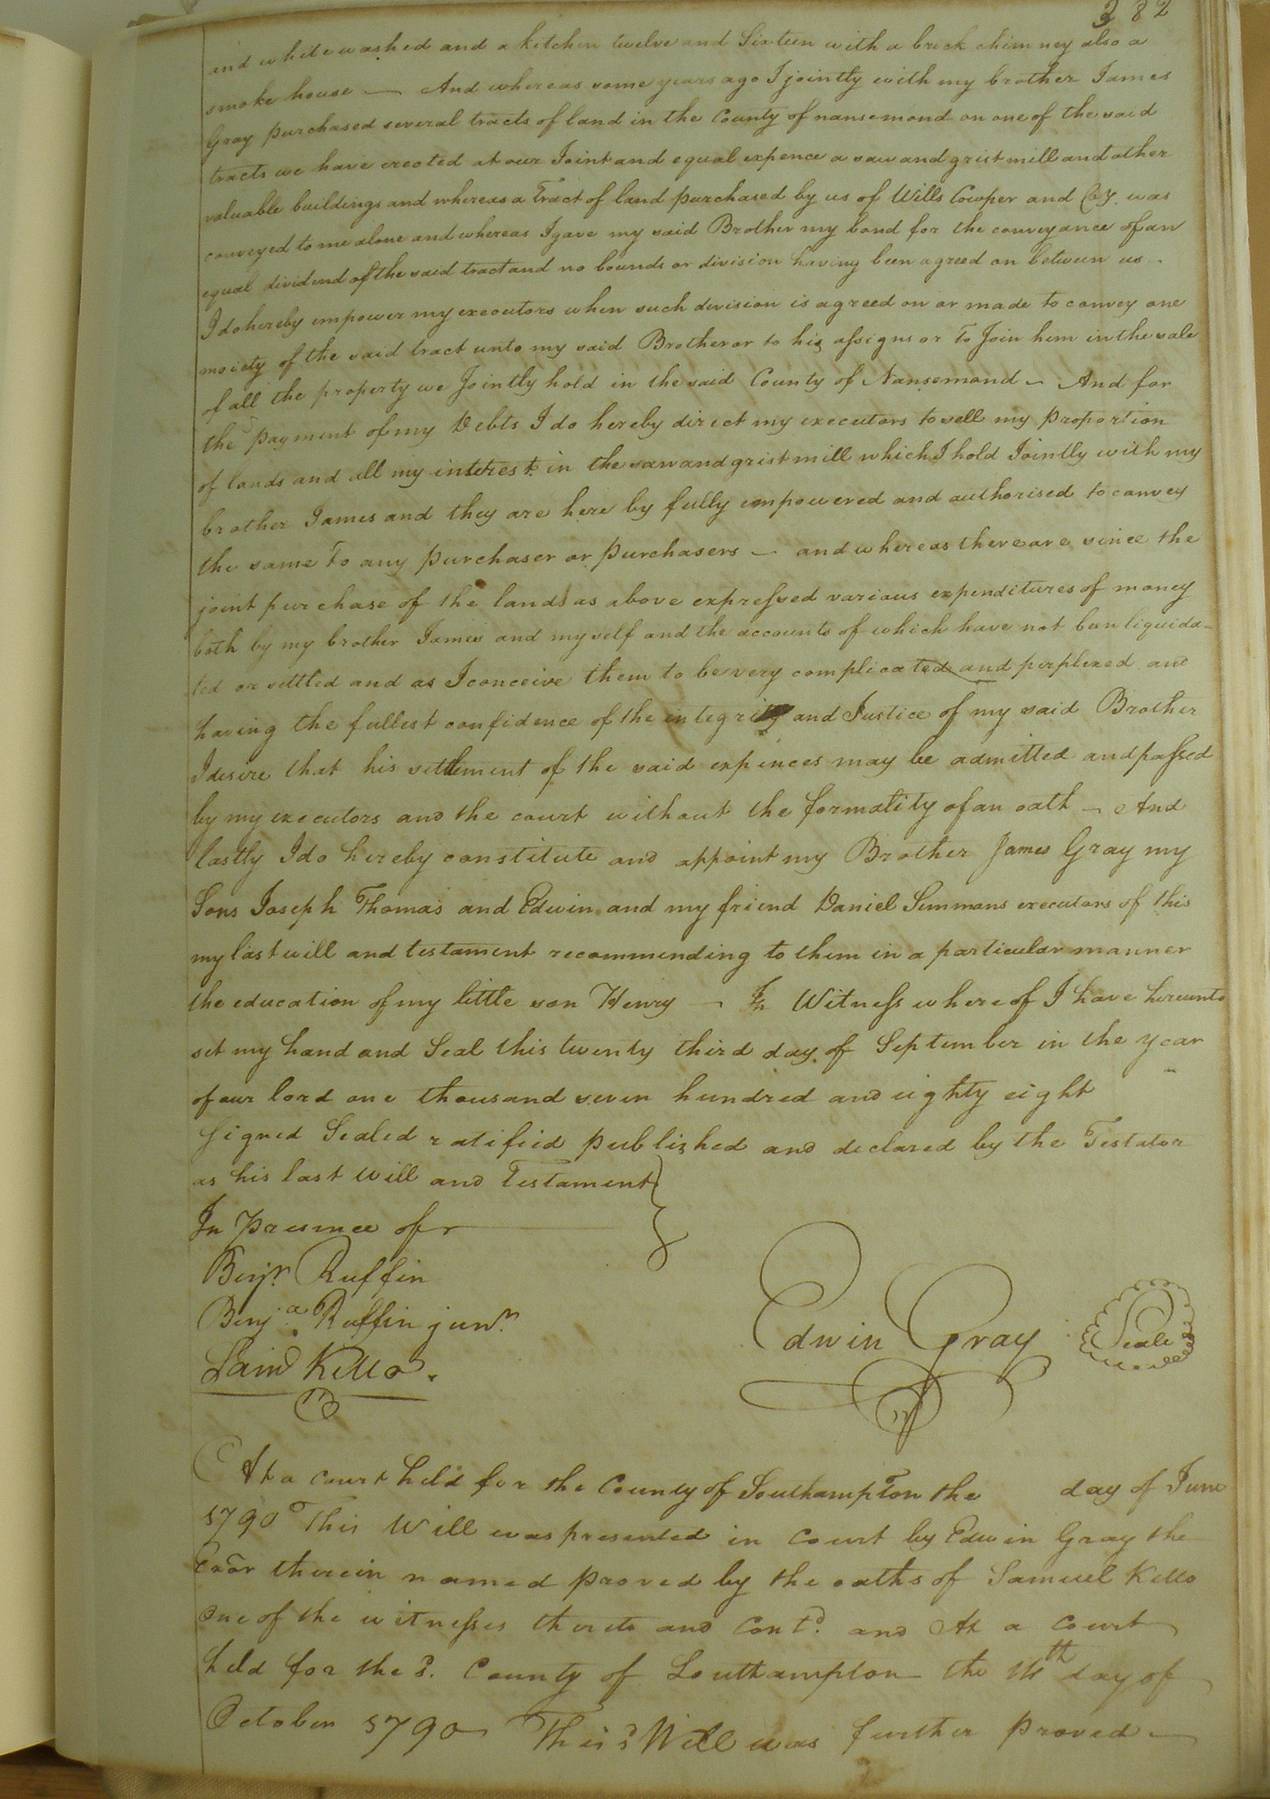 382
and white washed and a kitchen twelve and Sixteen with a brick chimney also a
smoke house — And whereas some years ago I jointly with my brother James
Gray purchased several tracts of land in the County of nansemond on one of the said
tracts we have erected at our Joint and equal expence a saw and grist mill and other
valuable buildings and whereas a Tract of land purchased by us of Wills Cowper and Coy. was
conveyed to me alone and whereas I gave my said Brother my bond for the conveyance of an
equal dividend of the said tract and no bounds or division having been agreed on between us -
I do hereby empower my executors when such division is agreed on or made to convey one
moiety of the said tract unto my said Brother or to his assigns or To Join him in the sale
of all the property we Jointly hold in the said County of Nansemond — And for
the payment of my Debts I do hereby direct my executors to sell my proportion
of lands and all my interest in the saw and grist mill which I hold Jointly with my
brother James and they are here by fully empowered and authorised to convey
the same To any purchaser or purchasers — and whereas there are since the
joint purchase of the lands as above expressed various expenditures of money
both by my brother James and myself and the accounts of which have not ben liquida-
ted or settled and as I conceive them to be very complicated and perplexed and
having the fullest confidence of the integrity and Justice of my said Brother
I desire that his settlement of the said expinces may be admitted and passed
by my executors and the court without the formality of an oath — And
lastly I do hereby constitute and appoint my Brother James Gray my
Sons Joseph Thomas and Edwin and my friend Daniel Simmons executors of this
my last will and testament recommending to them in a particular manner
the education of my little son Henry — In Witness whereof I have hereunto
set my hand and Seal this twenty third day of September in the year
of our lord one thousand seven hundred and eighty eight
Signed Sealed ratified published and declared by the Testator
as his last Will and Testament
In presence of
Benjn. Ruffin
Benja. Ruffin junr.
Edwin Gray Seale
Saml Kello.
At a Court held for the County of Southampton the day of June
1790 This Will was presented in Court by Edwin Gray the
Exor therein named proved by the oaths of Samuel Kello
One of the witnesses thereto and Contd. and At a Court
held for the sd. County of Southampton the 14th day of
October 1790 This Will was further proved —